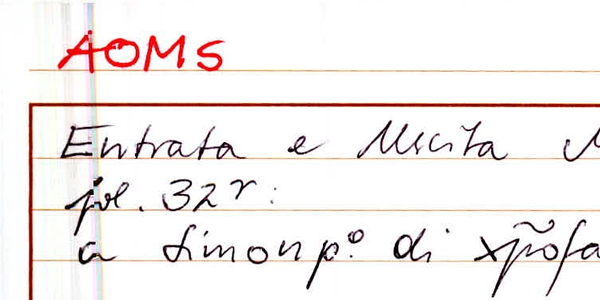 AOMS
Entrata e Uscita
fol. 32r:
a Simon p.º di xp̃ofa